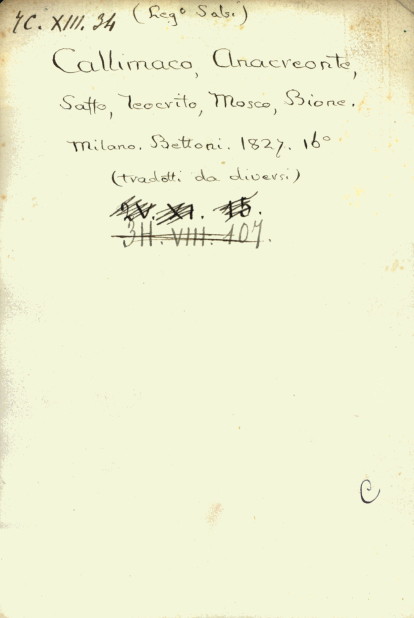 7C. XIII. 34 (Leg° Sabi)
Callimaco, Anacreonte,
Saffo, Teocrito, Mosco, Bione.
Milano. Bettoni. 1827. 16°
(tradotti da diversi)
XI. 15.
3H. VIII. 107.
C